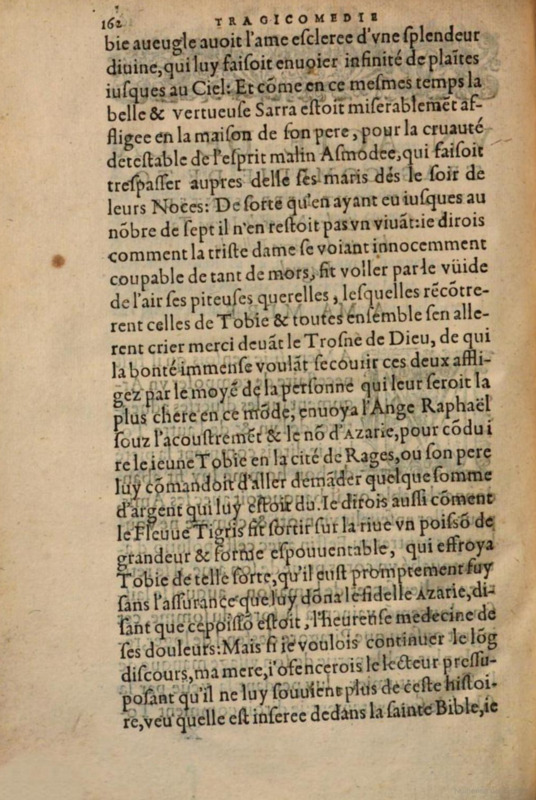 162 TRAGICOMEDIE
bie aueugle auoit l'ame esclercee d'vne splendeur
diuine, qui luy faisoit enuoier infinité de plaītes
iusques au Ciel: Et cōme en ce mesmes temps la
belle & vertueuse Sarra estoit miserablemēt af-
fligee en la maison de son pere, pour la cruauté
detestable de l'esprit malin Asmodee, qui faisoit
trespasser aupres delle ses maris dés le soir de
leurs Noces: De sorte qu'en ayant eu iusques au
nōbre de sept il n'en restoit pas vn viuāt: ie dirois
comment la triste dame se voiant innocemment
coupable de tant de mors, fit voller par le vüide
de l'air ses piteuses querelles, lesquelles rēcōtre-
rent celles de Tobie & toutes ensemble s'en alle-
rent crier merci deuāt le Trosne de Dieu, de qui
la bonté immense voulāt secourir ces deux affli-
gez par le moyē de la personne qui leur seroit la
plus chere en ce mōde, enuoya l'Ange Raphaël
souz l'acoustremēt & le nō d'Azarie, pour cōdui
re le ieune Tobie en la cité de Rages, ou son pere
luy cōmandoit d'aller demāder quelque somme
d'argent qui luy estoit du. Ie dirois aussi cōment
le Fleuue Tigris fit sortir sur la riue vn poissō de
grandeur & forme espouuentable, qui effroya
Tobie de telle sorte, qu'il eust promptement fuy
sans l'assurance que luy dōna le fidelle Azarie, di-
sant que ce poissō estoit, l'heureuse medecine de
ses douleurs: Mais si ie voulois continuer le lōg
discours, ma mere, i'ofencerois le lecteur pressu-
posant qu'il ne luy souuient plus de ceste histoi-
re, veu quelle est inseree dedans la sainte Bible, ie